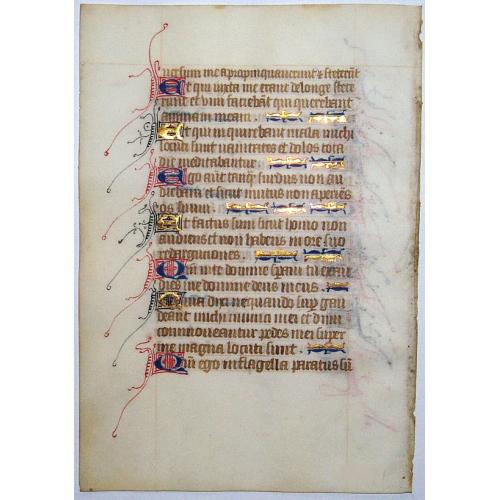 aduersum me appropinquauerunt & steterūt
Et qui iuxta me erant de longe stete
runt et vim faciebāt qui querebant
animam meam
Et qui inquirebant mala michi
locuti sunt uanitates et dolos tota
die meditabantur
Ego aūt tanq̄ surdus non au
diebam et sicut mutus non aperiēs
os suum
Et factus sum sicut homo non
audiens et non habens in ore suo
redargutiones
Qm̄ in te domine speraui tu exau
dies me domine deus meus
Quia dixi nequando sup gau
deant michi inimici mei et dum
commoueantur pedes mei super
me magna locuti sunt
Qm̄ ego in flagella paratus sū